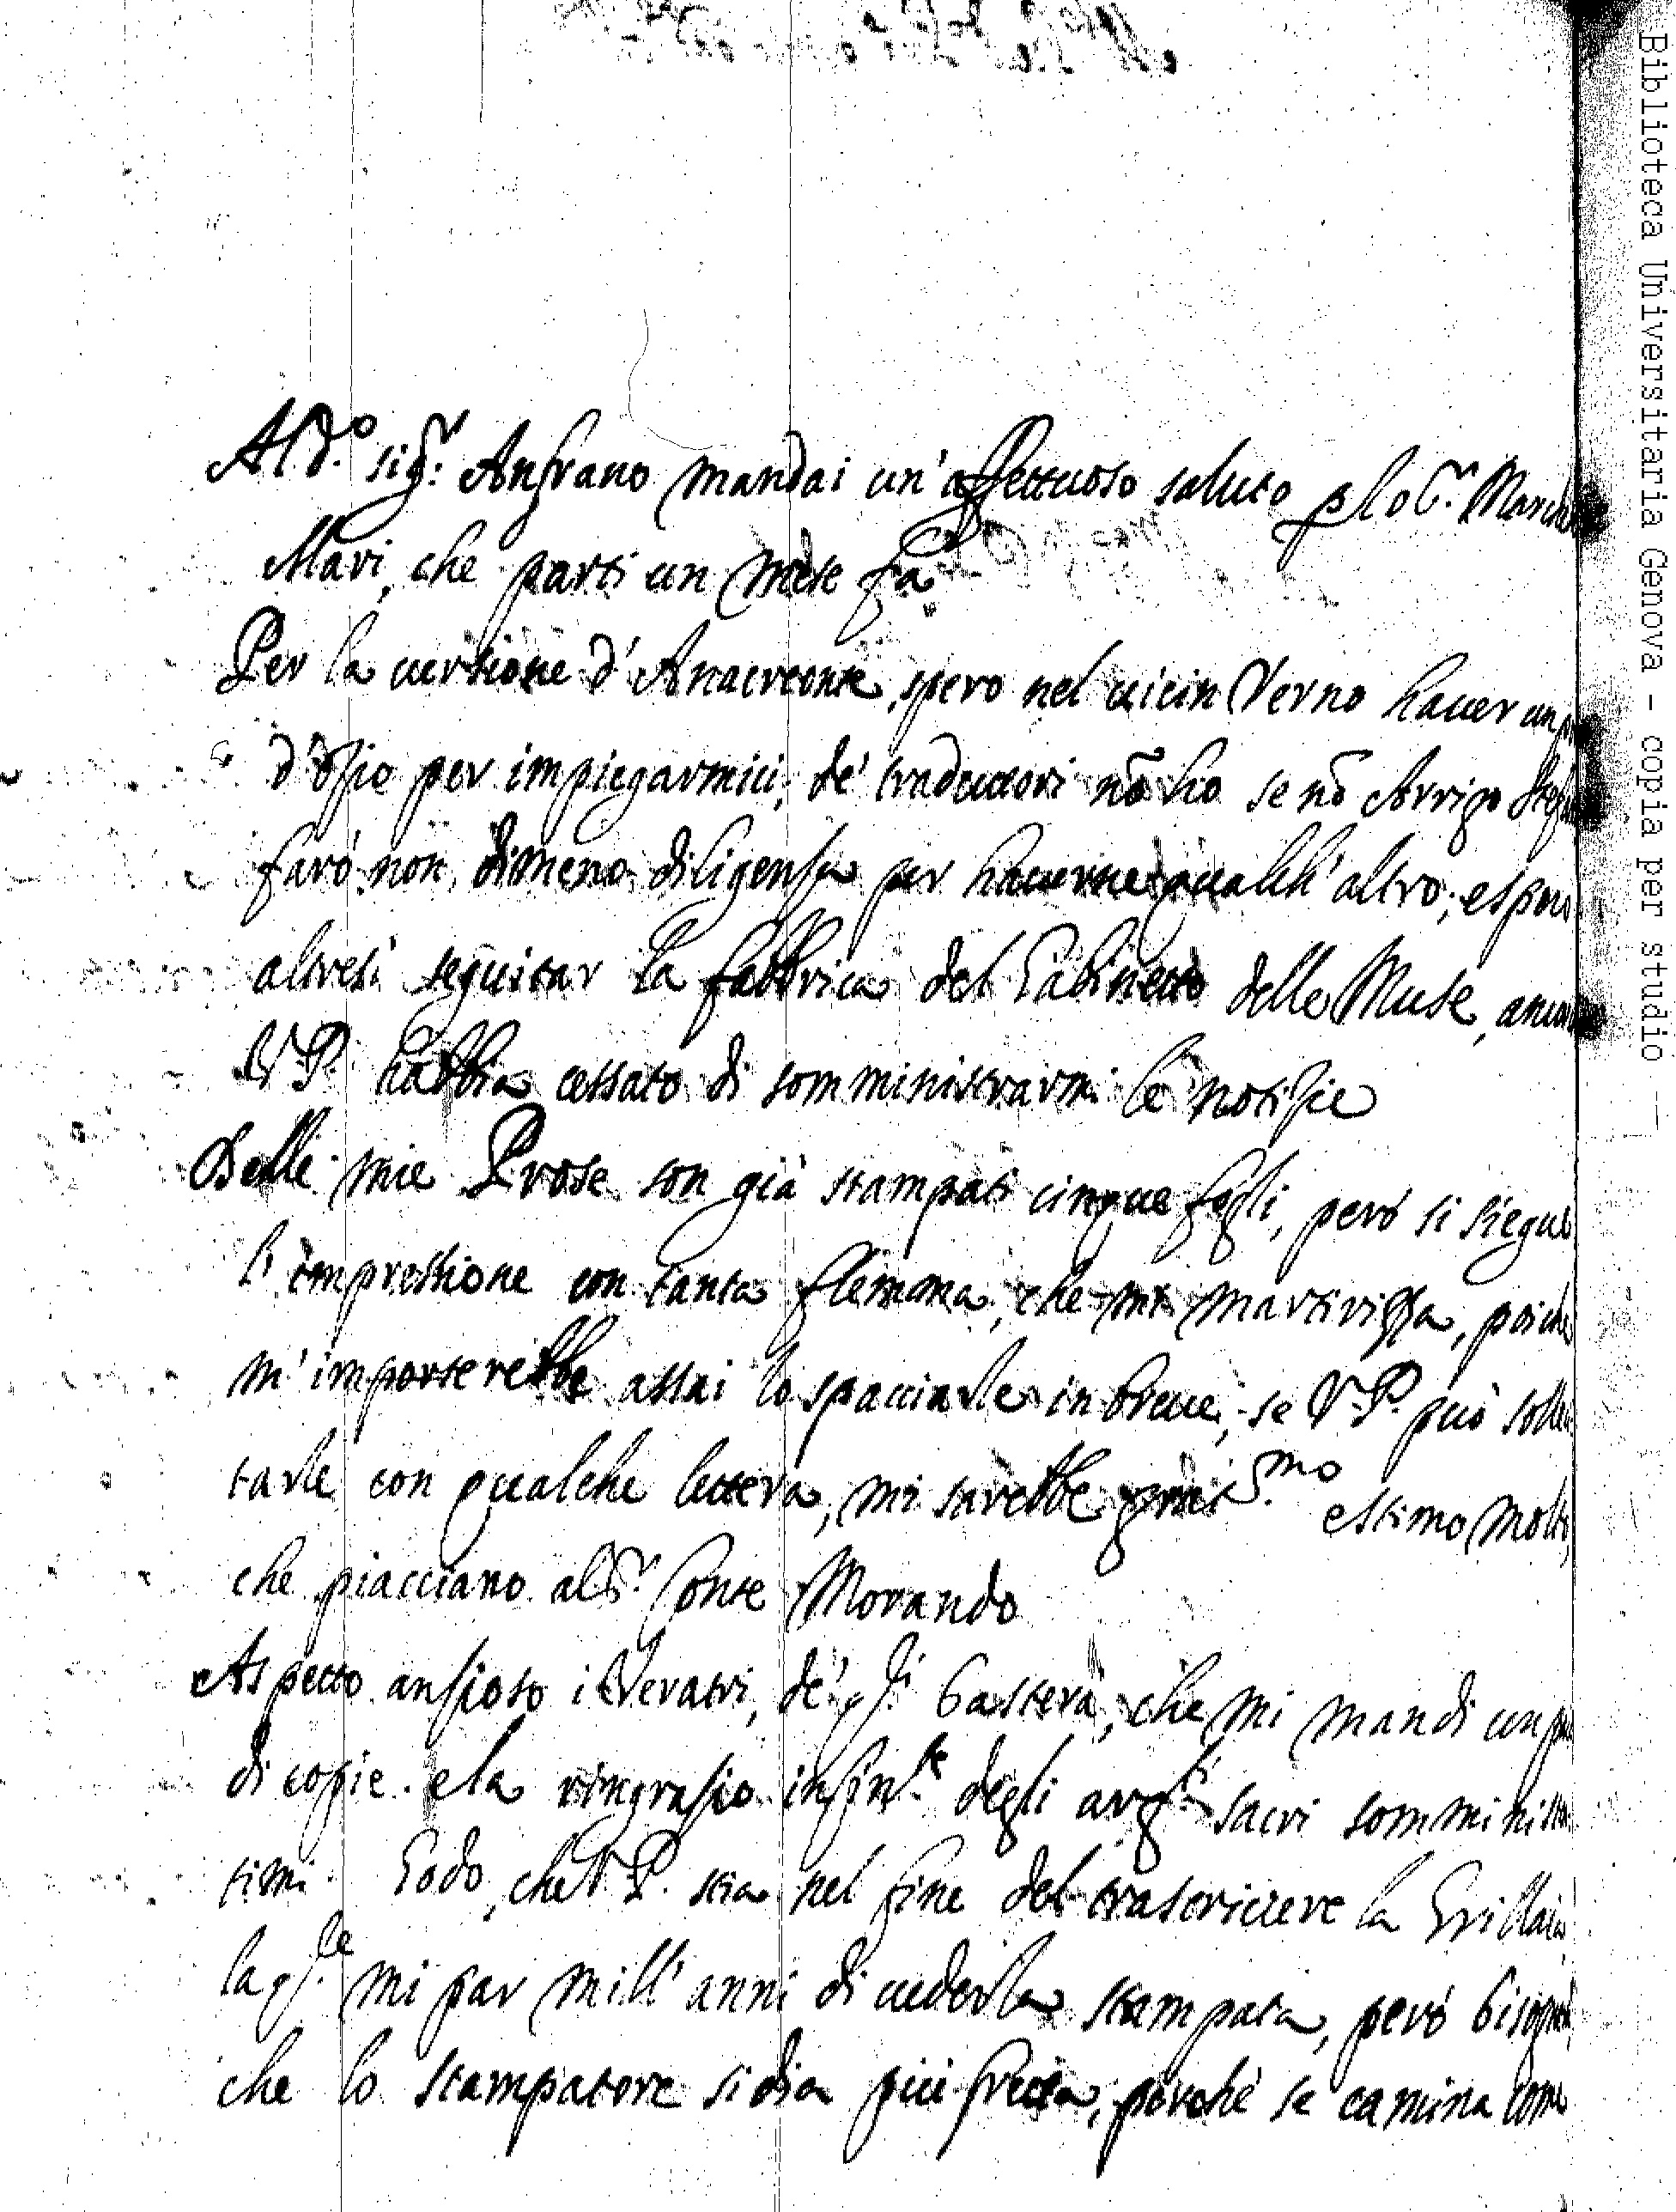 Al d.º sig.r Ansrano mandai un' affettuoso saluto p lo S.r March
Mari, che parti un mese fà
Per la versione d' Anacreonte, spero nel vicin Verno haver un po
d'ozio per impiegarmici; de' traduttori nō ho se nō Arrigo Stef
farò non dimeno diligenza per haverne qualch' altro; e spero
altresì seguitar la fabbrica del Gabinetto delle Muse, ancor
V.P. habbia cessato di somministrarmi le notizie
Delle mie Prose son già stampati cinque fogli, però si siegue
l' impressione con tanta flemma, che mi martirizza, poiche
m' importerebbe assai lo spacciarle in breve; se V.P. può solleci
tarle con qualche lettera, mi sarebbe gratiss.mo e stimo molto,
che piacciano al S.r Conte Morando
Aspetto ansioso i Veratri, de' q.li basterà, che mi mandi un po
di copie. e la ringrazio infin.te degli arg.ti sacri somministra
timi. Godo, che V.P. stia nel fine del trascrivere la Grillaia
la q.le mi par mill' anni di vederla stampata, però bisogna,
che lo stampatore si dia più fretta, perche se camina come
Biblioteca Universitaria Genova - copia per studio